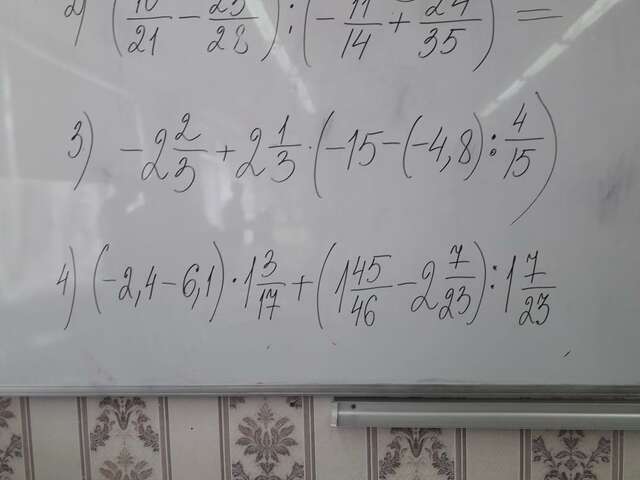 2) (10/21 - 25/28) : (-11/14 + 24/35) =
3) -2 2/3 + 2 1/3 · (-15 - (-4,8) : 4/15)
4) (-2,4 - 6,1) · 1 3/17 + (1 45/46 - 2 7/23) : 1 7/23